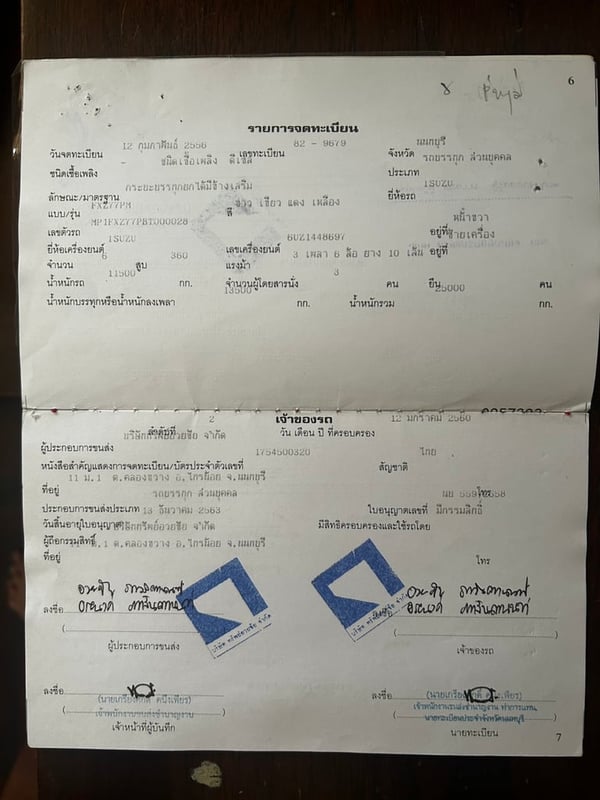 6
รายการจดทะเบียน
วันจดทะเบียน 12 กุมภาพันธ์ 2556 เลขทะเบียน 82 - 9679 จังหวัด นนทบุรี
ชนิดเชื้อเพลิง - ชนิดเชื้อเพลิง ดีเซล ประเภท รถบรรทุก ส่วนบุคคล
ลักษณะ/มาตรฐาน กระบะบรรทุกยกได้มีข้างเสริม ยี่ห้อรถ ISUZU
แบบ/รุ่น FXZ77PM สี ขาว เขียว แดง เหลือง
เลขตัวรถ MP1FXZ77PBT000028 อยู่ที่ หน้าขวา
ยี่ห้อเครื่องยนต์ ISUZU เลขเครื่องยนต์ 6UZ1448697 อยู่ที่ ซ้ายเครื่อง
จำนวน 6 สูบ 360 แรงม้า 3 เพลา 6 ล้อ ยาง 10 เส้น
น้ำหนักรถ 11500 กก. จำนวนผู้โดยสารนั่ง 3 คน ยืน คน
น้ำหนักบรรทุกหรือน้ำหนักลงเพลา 13500 กก. น้ำหนักรวม 25000 กก.
เจ้าของรถ
ลำดับที่ 2 วัน เดือน ปี ที่ครอบครอง 12 มกราคม 2560
ผู้ประกอบการขนส่ง บริษัททรัพย์อวยชัย จำกัด
หนังสือสำคัญแสดงการจดทะเบียน/บัตรประจำตัวเลขที่ 1754500320 สัญชาติ ไทย
ที่อยู่ 11 ม.1 ต.คลองขวาง อ.ไทรน้อย จ.นนทบุรี โทร
ประกอบการขนส่งประเภท รถบรรทุก ส่วนบุคคล ใบอนุญาตเลขที่
วันสิ้นอายุใบอนุญาต 13 ธันวาคม 2563 มีสิทธิครอบครองและใช้รถโดย มีกรรมสิทธิ์
ผู้ถือกรรมสิทธิ์ บริษัททรัพย์อวยชัย จำกัด
ที่อยู่ ม.1 ต.คลองขวาง อ.ไทรน้อย จ.นนทบุรี โทร
ลงชื่อ
ผู้ประกอบการขนส่ง เจ้าของรถ
ลงชื่อ ลงชื่อ
เจ้าพนักงานขนส่งชำนาญงาน
เจ้าหน้าที่ผู้บันทึก นายทะเบียน
7